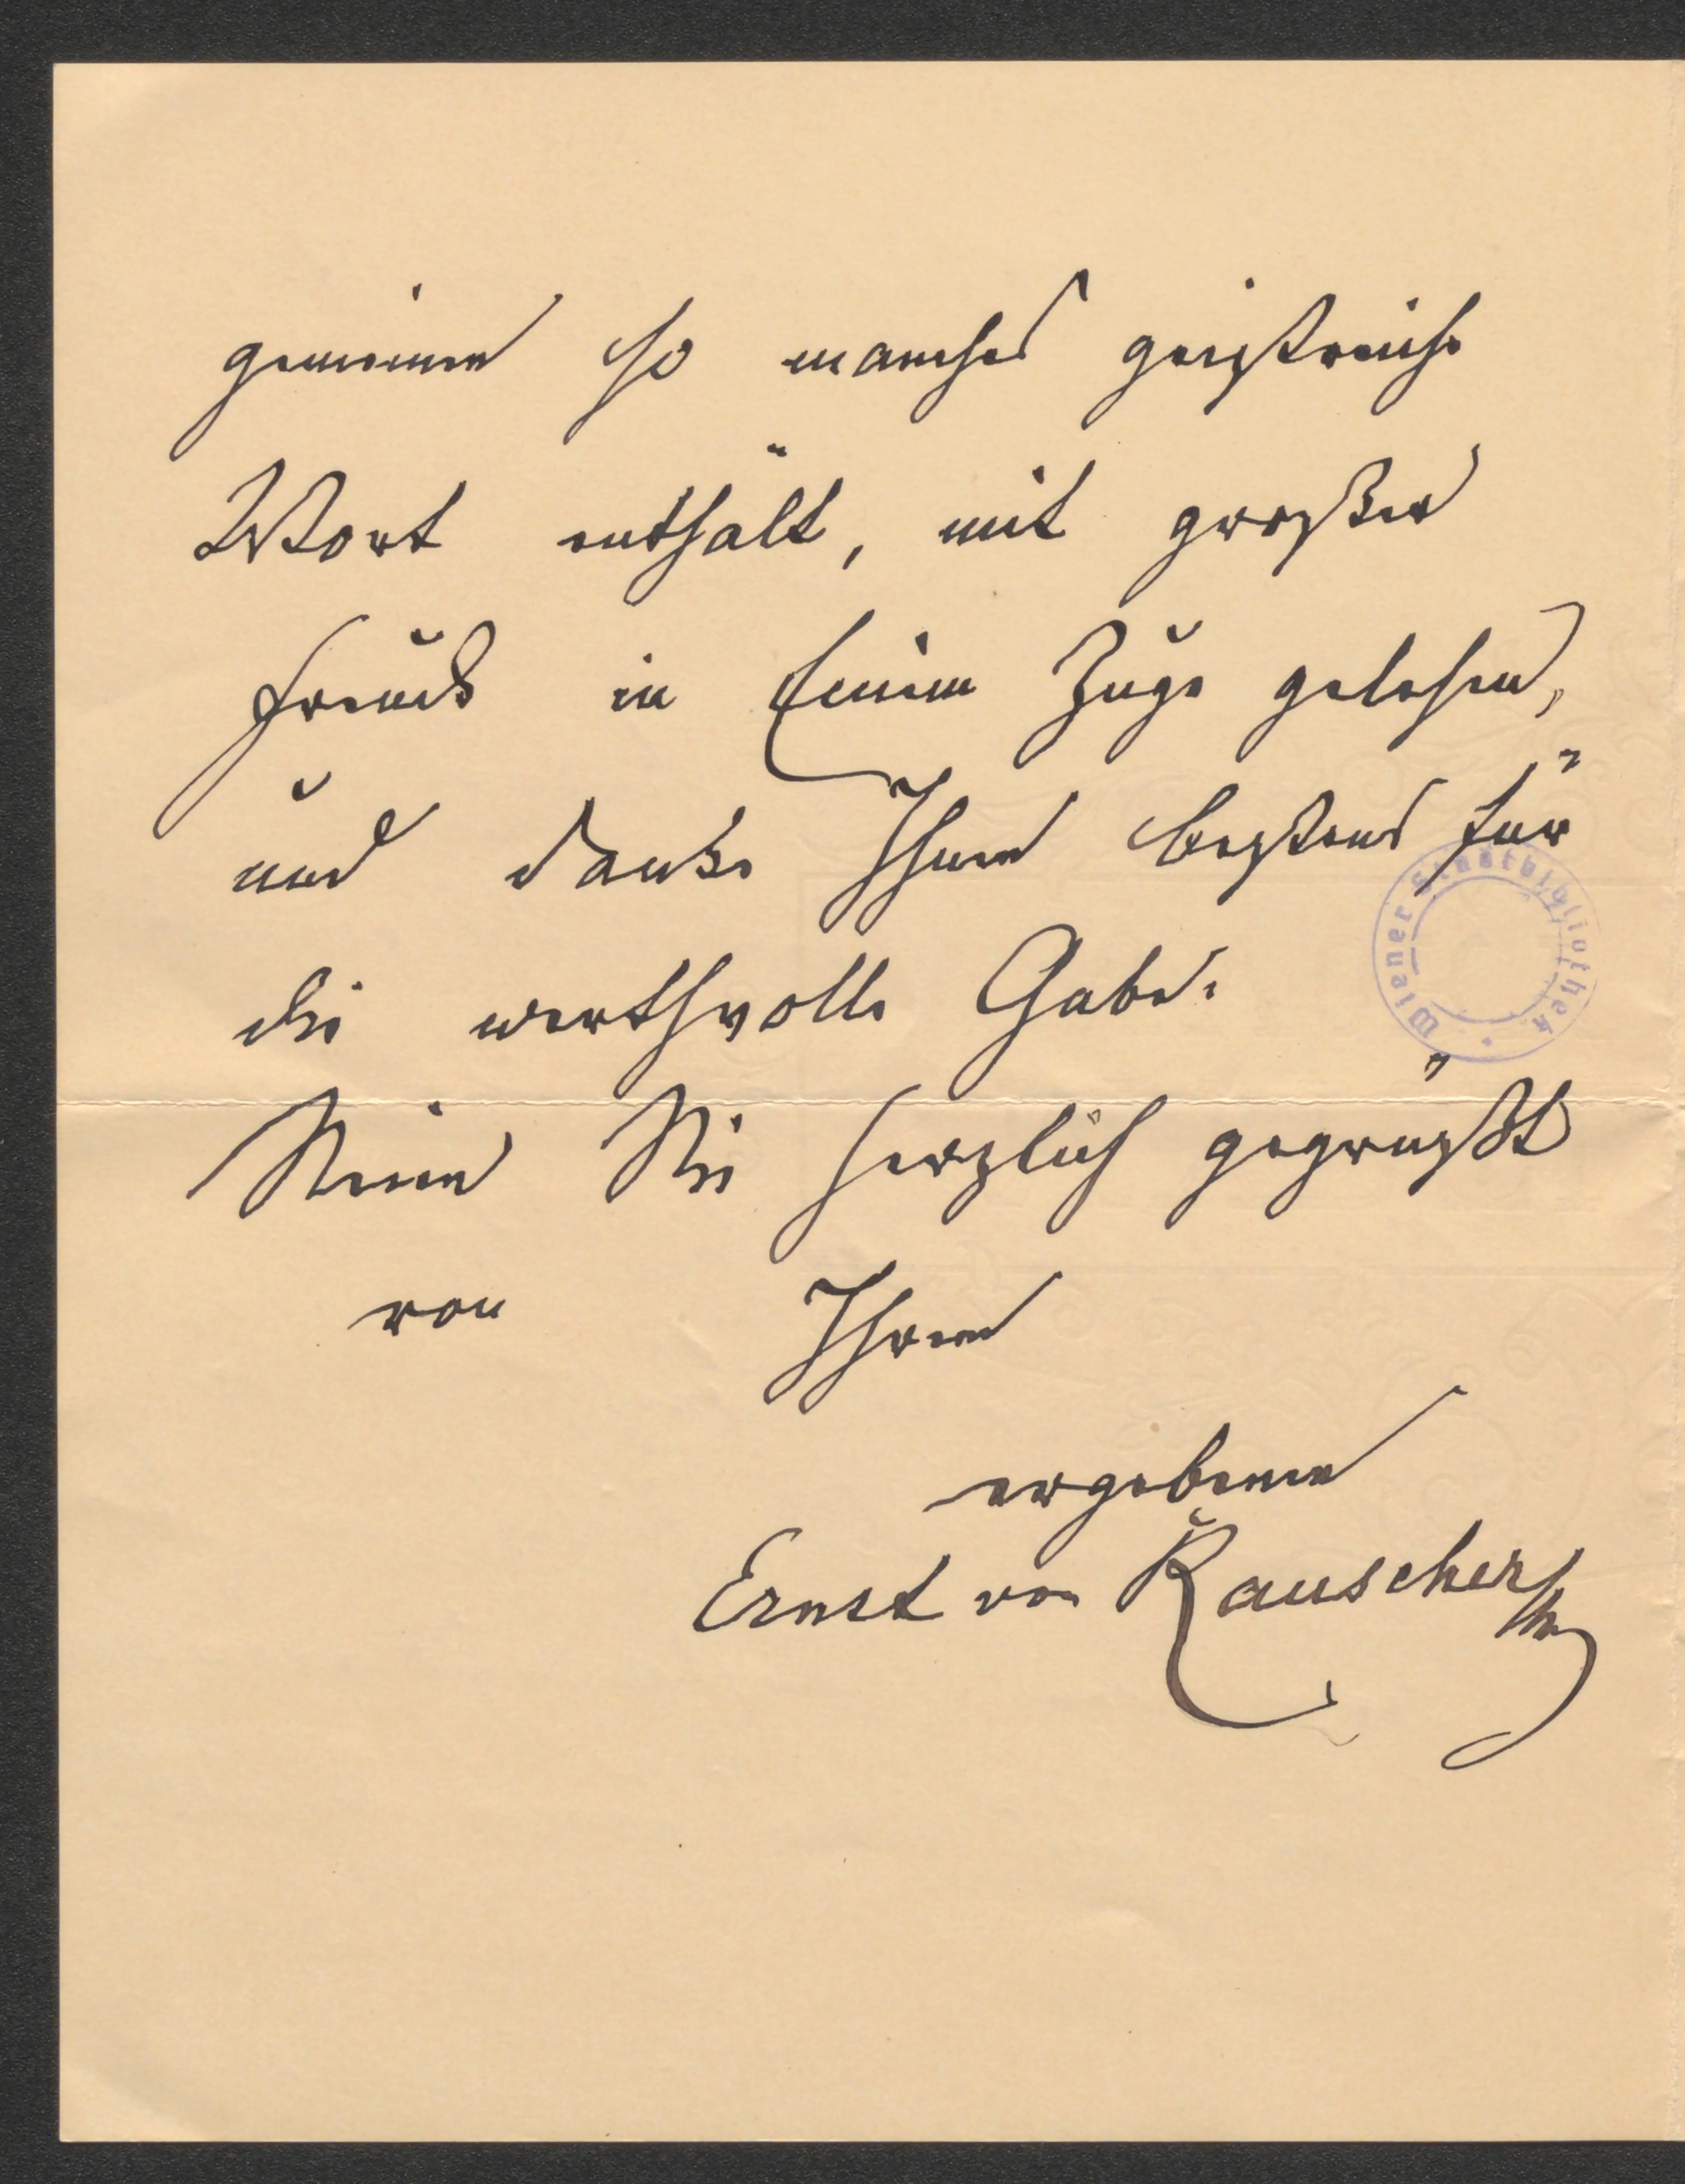 gemeinen so manches geistreiche
Wort enthält, mit großer
Freude in Einem Zuge gelesen,
und danke Ihnen bestens für
die werthvolle Gabe.
Wiener Stadtbibliothek
Seien Sie herzlich gegrüßt
von Ihrem
ergebenen
Ernst von Rauscher